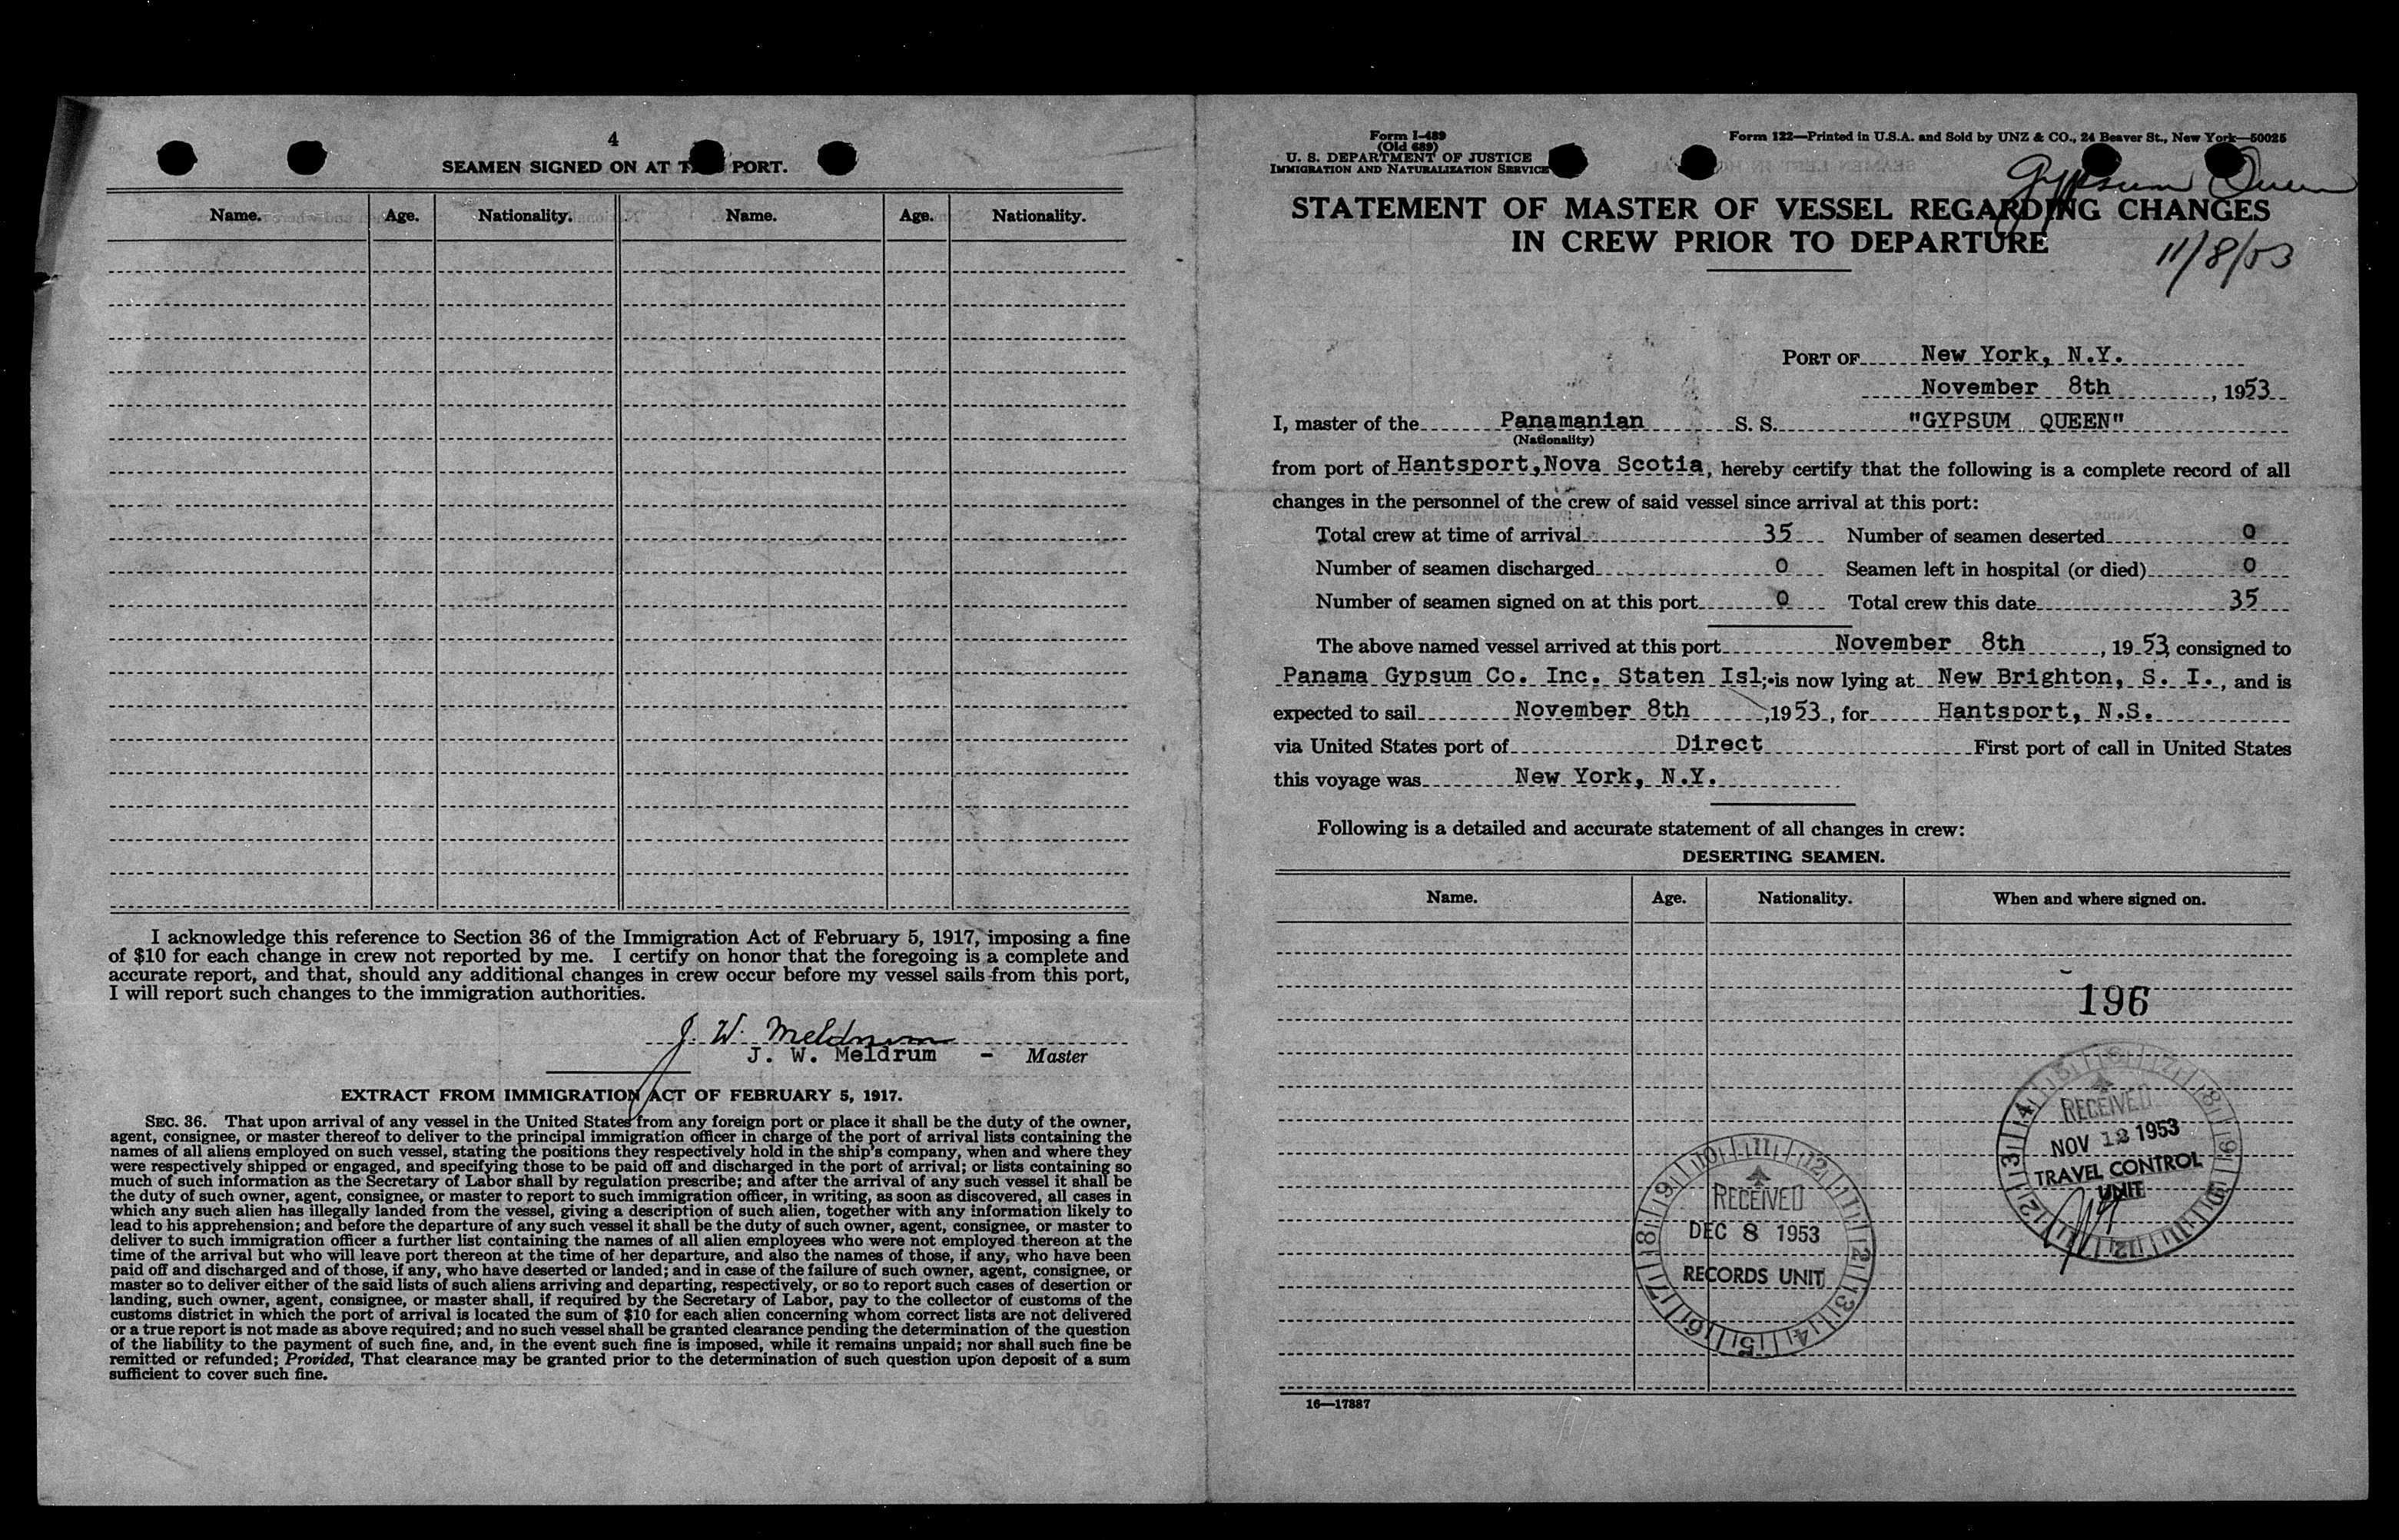 4
SEAMEN SIGNED ON AT T PORT.
Name. Age. Nationality. Name. Age. Nationality.
I acknowledge this reference to Section 36 of the Immigration Act of February 5, 1917, imposing a fine
of $10 for each change in crew not reported by me. I certify on honor that the foregoing is a complete and
accurate report, and that, should any additional changes in crew occur before my vessel sails from this port,
I will report such changes to the immigration authorities.
J. W. Meldrum
J. W. Meldrum - Master
EXTRACT FROM IMMIGRATION ACT OF FEBRUARY 5, 1917.
SEC. 36. That upon arrival of any vessel in the United States from any foreign port or place it shall be the duty of the owner,
agent, consignee, or master thereof to deliver to the principal immigration officer in charge of the port of arrival lists containing the
names of all aliens employed on such vessel, stating the positions they respectively hold in the ship's company, when and where they
were respectively shipped or engaged, and specifying those to be paid off and discharged in the port of arrival; or lists containing so
much of such information as the Secretary of Labor shall by regulation prescribe; and after the arrival of any such vessel it shall be
the duty of such owner, agent, consignee, or master to report to such immigration officer, in writing, as soon as discovered, all cases in
which any such alien has illegally landed from the vessel, giving a description of such alien, together with any information likely to
lead to his apprehension; and before the departure of any such vessel it shall be the duty of such owner, agent, consignee, or master to
deliver to such immigration officer a further list containing the names of all alien employees who were not employed thereon at the
time of the arrival but who will leave port thereon at the time of her departure, and also the names of those, if any, who have been
paid off and discharged and of those, if any, who have deserted or landed; and in case of the failure of such owner, agent, consignee, or
master so to deliver either of the said lists of such aliens arriving and departing, respectively, or so to report such cases of desertion or
landing, such owner, agent, consignee, or master shall, if required by the Secretary of Labor, pay to the collector of customs of the
customs district in which the port of arrival is located the sum of $10 for each alien concerning whom correct lists are not delivered
or a true report is not made as above required; and no such vessel shall be granted clearance pending the determination of the question
of the liability to the payment of such fine, and, in the event such fine is imposed, while it remains unpaid; nor shall such fine be
remitted or refunded; Provided, That clearance may be granted prior to the determination of such question upon deposit of a sum
sufficient to cover such fine.
Form I-489
(Old 689)
U. S. DEPARTMENT OF JUSTICE
IMMIGRATION AND NATURALIZATION SERVICE
Form 122—Printed in U.S.A. and Sold by UNZ & CO., 24 Beaver St., New York—50025
Gypsum Queen
STATEMENT OF MASTER OF VESSEL REGARDING CHANGES
IN CREW PRIOR TO DEPARTURE
11/8/53
PORT OF New York, N.Y.
November 8th, 1953
I, master of the Panamanian S. S. "GYPSUM QUEEN"
(Nationality)
from port of Hantsport, Nova Scotia, hereby certify that the following is a complete record of all
changes in the personnel of the crew of said vessel since arrival at this port:
Total crew at time of arrival 35 Number of seamen deserted 0
Number of seamen discharged 0 Seamen left in hospital (or died) 0
Number of seamen signed on at this port 0 Total crew this date 35
The above named vessel arrived at this port November 8th, 1953, consigned to
Panama Gypsum Co. Inc. Staten Isl; is now lying at New Brighton, S. I., and is
expected to sail November 8th, 1953, for Hantsport, N.S.
via United States port of Direct First port of call in United States
this voyage was New York, N.Y.
Following is a detailed and accurate statement of all changes in crew:
DESERTING SEAMEN.
Name. Age. Nationality. When and where signed on.
196
RECEIVED
NOV 12 1953
TRAVEL CONTROL
UNIT
RECEIVED
DEC 8 1953
RECORDS UNIT
16—17887